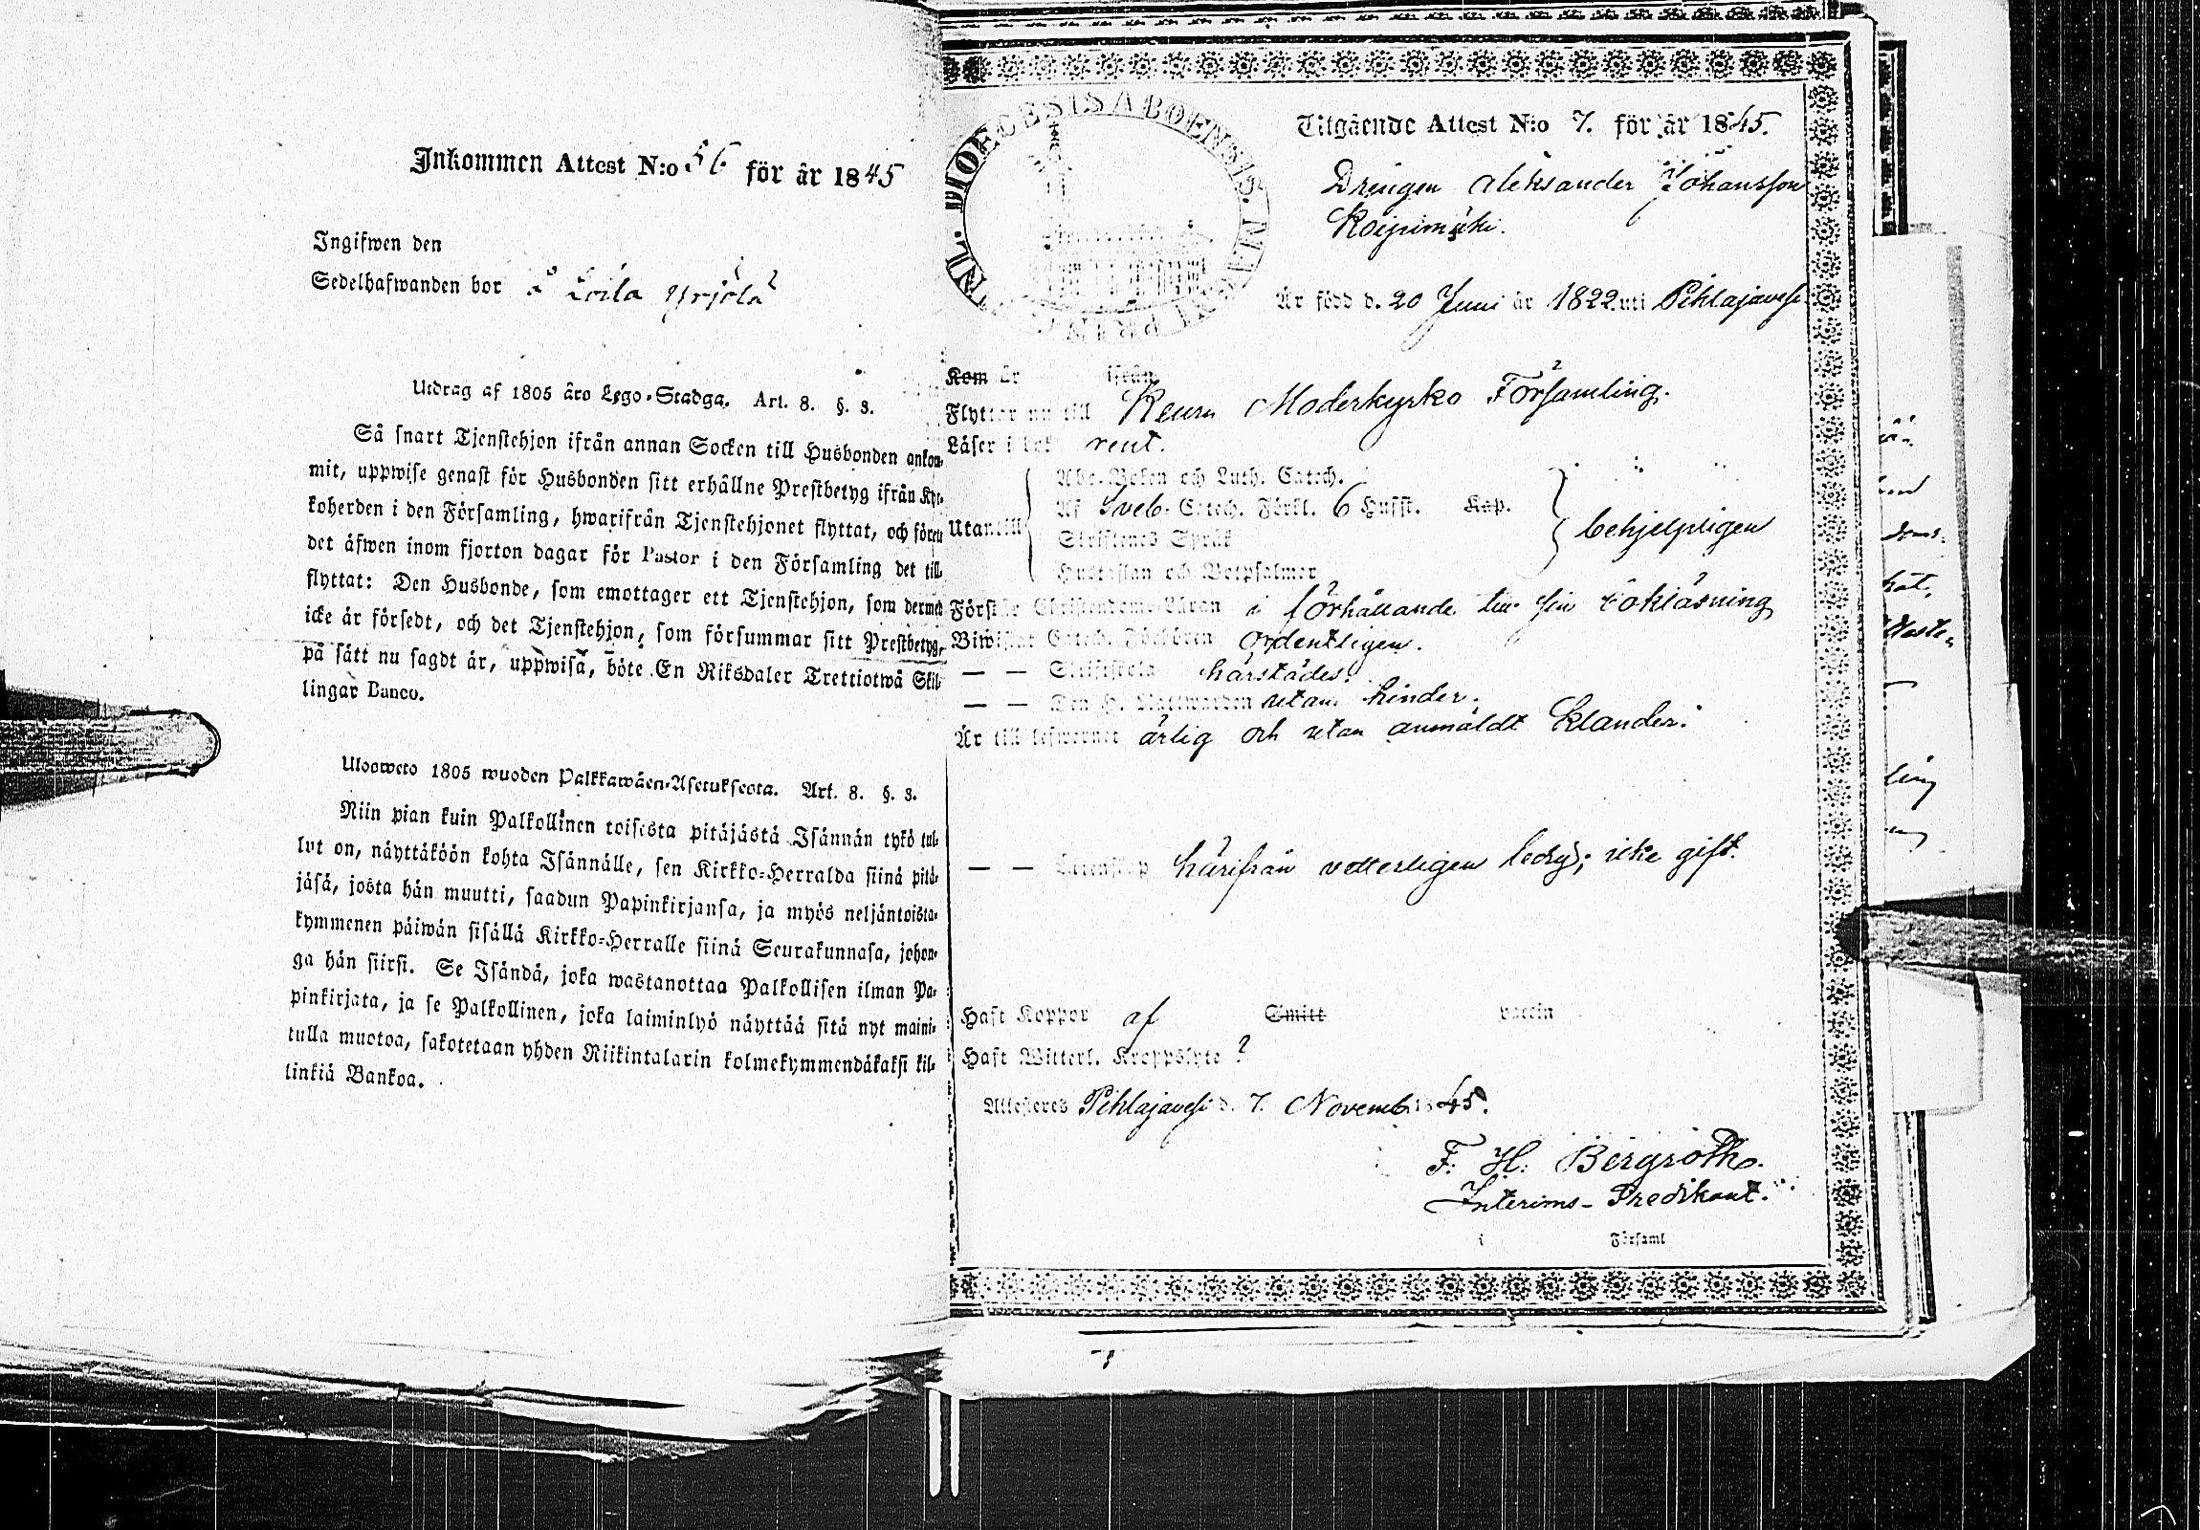 Inkommen Attest N:o 56 för år 1845
Ingifwen den
Sedelhafwanden bor å Loila Yrjölä
Utdrag af 1805 åro Lego-Stadga. Art. 8. §. 3.
Så snart Tjenstehjon ifrån annan Socken till Husbonden ankom-
mit, uppwise genast för Husbonden sitt erhållne Prestbetyg ifrån Kyr-
koherden i den Församling, hwarifrån Tjenstehjonet flyttat, och förete
det äfwen inom fjorton dagar för Pastor i den Församling det till-
flyttat: Den Husbonde, som emottager ett Tjenstehjon, som dermed
icke är försedt, och det Tjenstehjon, som försummar sitt Prestbetyg,
på sätt nu sagdt är, uppwisa, böte En Riksdaler Trettiotwå Skil-
lingar Banco.
Ulosweto 1805 wuoden Palkkawäen-Asetuksesta. Art. 8. §. 3.
Niin pian kuin Palkollinen toisesta pitäjästä Isännän tykö tul-
lut on, näyttäköön kohta Isännälle, sen Kirkko-Herralda siinä pitä-
jäsä, josta hän muutti, saadun Papinkirjansa, ja myös neljäntoista-
kymmenen päiwän sisällä Kirkko-Herralle siinä Seurakunnasa, johon-
ga hän siirsi. Se Isändä, joka wastanottaa Palkollisen ilman Pa-
pinkirjata, ja se Palkollinen, joka laiminlyö näyttää sitä nyt maini-
tulla muotoa, sakotetaan yhden Riikintalarin kolmekymmendäkaksi kil-
linkiä Bankoa.
DIOECESIS ABOENSIS.
Utgående Attest N:o 7. för år 1845.
Drengen Aleksander Johansson
Koipimäki.
Är född d. 20 Juni år 1822 uti Pihlajavesi
Kom år ifrån
Flyttar nu till Keuru Moderkyrko Församling.
Läser i bok rent.
Abc-Boken och Luth. Catech.
Af Sveb. Catech. Förkl. 6 Hufst. Kap.
Utantill behjelpligen
Skriftenes Språk
Hustaflan och Botpsalmer
Förstår Christendoms-Läran i förhållande till sin bokläsning
Biwistat Catech. Förhören ordentligen.
— — Skriftskola härstädes.
— — Den H. Nattwarden utan hinder.
Är till lefwernet ärlig och utan anmäldt klander.
— — Ectenskap härifrån vetterligen ledig; icke gift.
Haft Koppor af Smitt vaccin
Haft Witterl. Kroppslyte ?
Attesteres Pihlajavesi d. 7. Novemb. 1845.
F. H. Bergroth.
Interims-Predikant.
i Församl